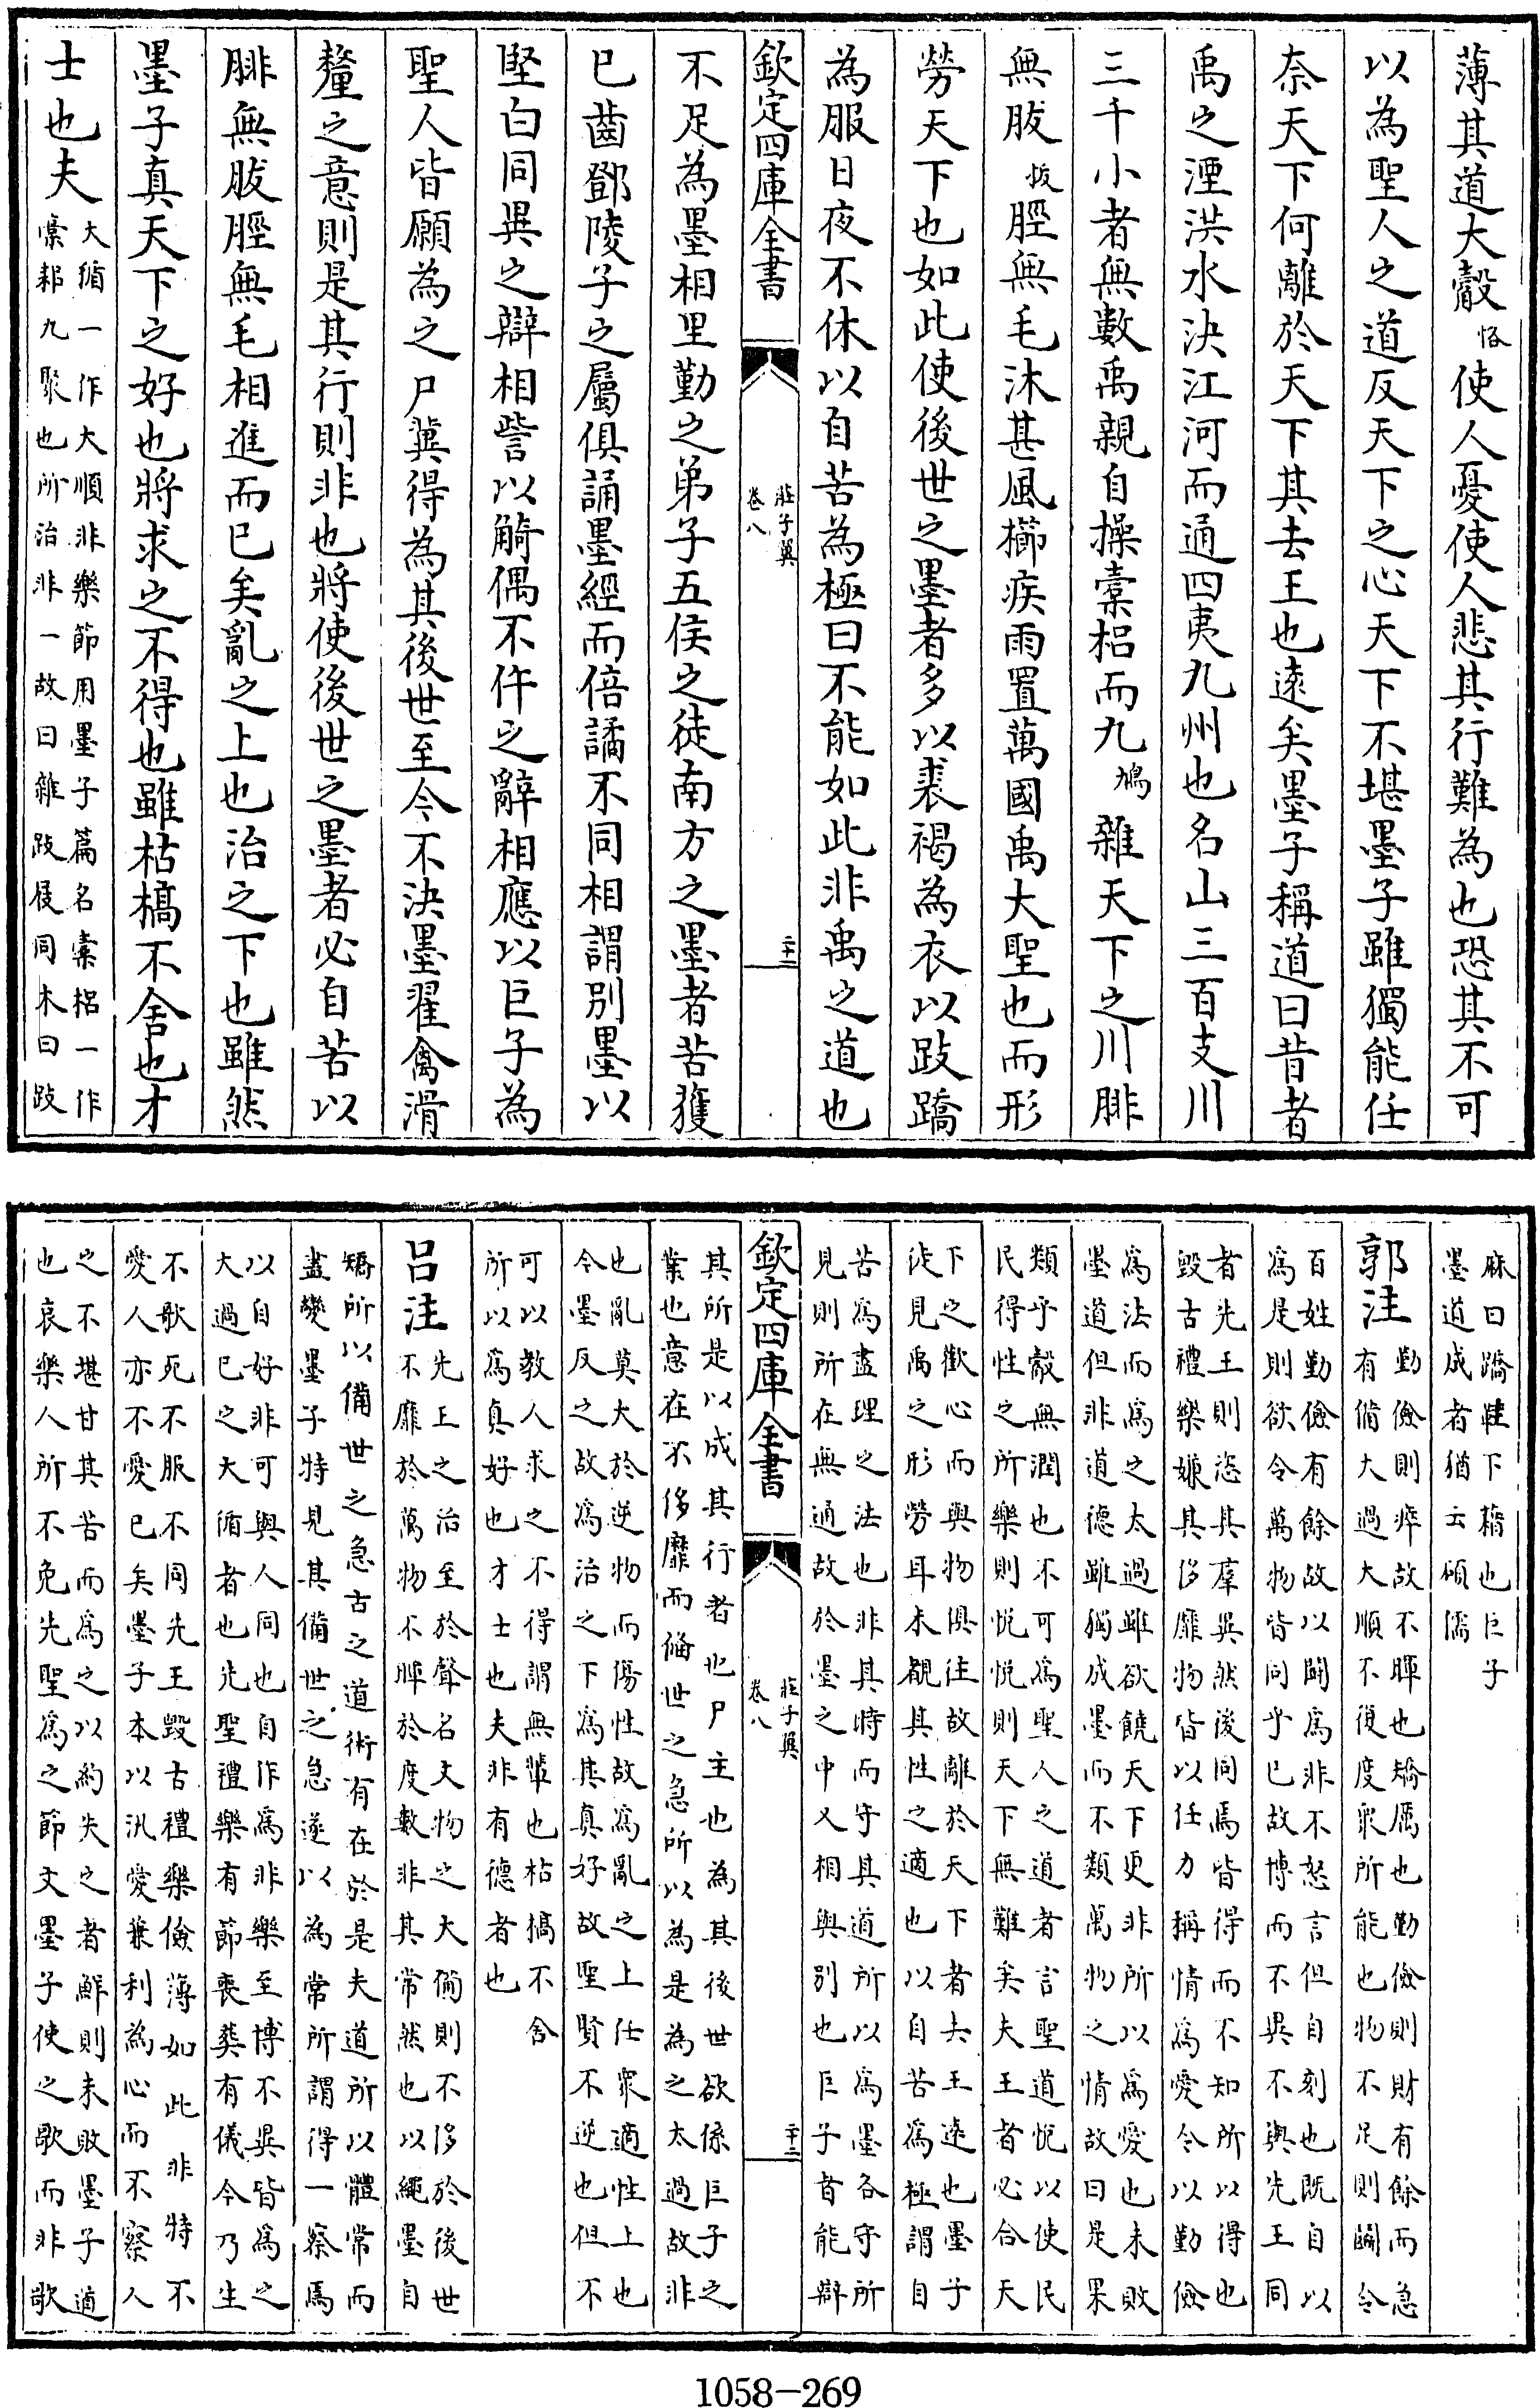 薄其道大觳恪使人憂使人悲其行難為也恐其不可
以為聖人之道反天下之心天下不堪墨子雖獨能任
奈天下何離於天下其去王也遠矣墨子稱道曰昔者
禹之湮洪水決江河而通四夷九州也名山三百支川
三千小者無數禹親自操槖梠而九鳩雜天下之川腓
無胈拔脛無毛沐甚風櫛疾雨置萬國禹大聖也而形
勞天下也如此使後世之墨者多以裘褐為衣以跂蹻
為服日夜不休以自苦為極曰不能如此非禹之道也
欽定四庫全書
莊子翼
卷八
二十一
不足為墨相里勤之弟子五侯之徒南方之墨者苦獲
已齒鄧陵子之屬俱誦墨經而倍譎不同相謂别墨以
堅白同異之辯相訾以觭偶不仵之辭相應以巨子為
聖人皆願為之尸冀得為其後世至今不決墨翟禽滑
釐之意則是其行則非也將使後世之墨者必自苦以
腓無胈脛無毛相進而已矣亂之上也治之下也雖然
墨子真天下之好也將求之不得也雖枯槁不舍也才
士也夫
大循一作大順非樂節用墨子篇名槖梠一作
槖耜九聚也所治非一故曰雜跂屐同木曰跂
麻曰蹻鞋下藉也巨子
墨道成者猶云碩儒
郭注
勤儉則瘁故不暉也矯厲也勤儉則財有餘而急
有備大過大順不復度衆所能也物不足則鬭令
百姓勤儉有餘故以鬭為非不怒言但自刻也既自以
為是則欲令萬物皆同乎已故博而不異不與先王同
者先王則恣其羣異然後同焉皆得而不知所以得也
毀古禮樂嫌其侈靡物皆以任力稱情為愛今以勤儉
為法而為之太過雖欲饒天下更非所以為愛也未敗
墨道但非道德雖獨成墨而不類萬物之情故曰是果
類乎觳無潤也不可為聖人之道者言聖道悅以使民
民得性之所樂則悅悅則天下無難矣夫王者必合天
下之歡心而與物俱往故離於天下者去王遠也墨子
徒見禹之形勞耳未覩其性之適也以自苦為極謂自
苦為盡理之法也非其時而守其道所以為墨各守所
見則所在無通故於墨之中又相與别也巨子者能辯
欽定四庫全書
莊子翼
卷八
二十二
其所是以成其行者也尸主也為其後世欲係巨子之
業也意在不侈靡而備世之急所以為是為之太過故非
也亂莫大於逆物而傷性故為亂之上任衆適性上也
今墨反之故為治之下為其真好故聖賢不逆也但不
可以教人求之不得謂無輩也枯槁不舍
所以為真好也才士也夫非有德者也
呂注
先王之治至於聲名文物之大備則不侈於後世
不靡於萬物不暉於度數非其常然也以繩墨自
矯所以備世之急古之道術有在於是夫道所以體常而
盡變墨子特見其備世之急遂以為常所謂得一察焉
以自好非可與人同也自作為非樂至博不異皆為之
大過已之大循者也先聖禮樂有節喪葬有儀今乃生
不歌死不服不同先王毀古禮樂儉薄如此非特不
愛人亦不愛已矣墨子本以汎愛兼利為心而不察人
之不堪甘其苦而為之以約失之者鮮則未敗墨子道
也哀樂人所不免先聖為之節文墨子使之歌而非歌
1058-269